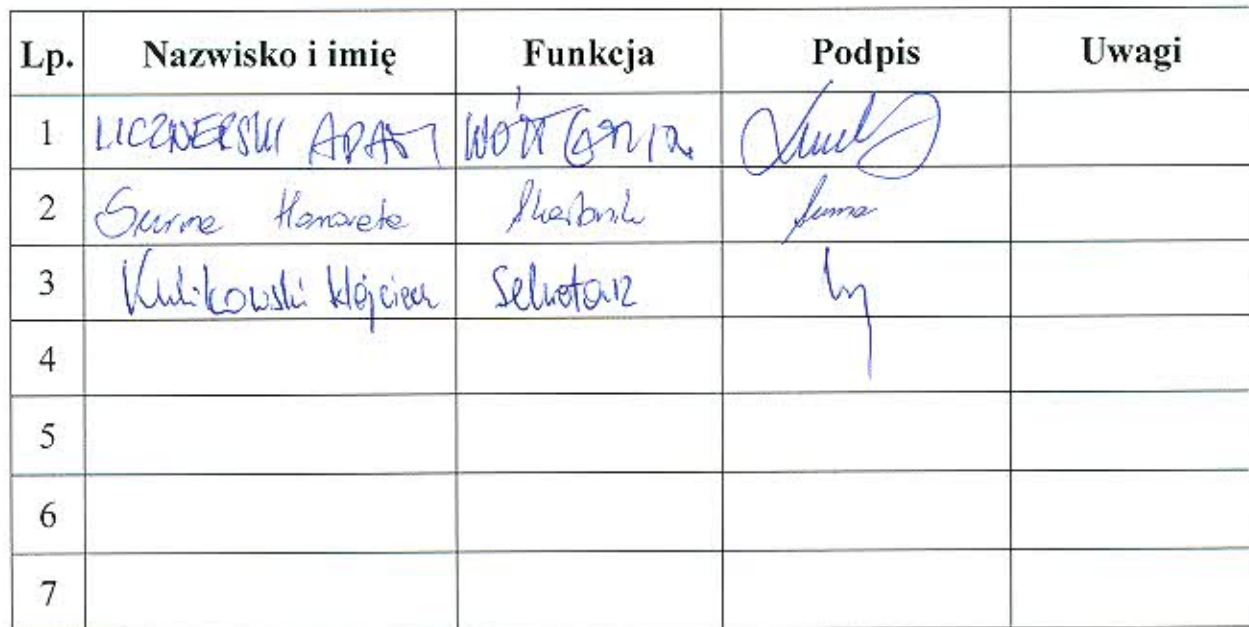 Lp. Nazwisko i imię Funkcja Podpis Uwagi
1 LICZNERSKI ADAM WÓJT GMINY
2 Surma Skarbnik
3 Kulikowski Wojciech Sekretarz
4
5
6
7